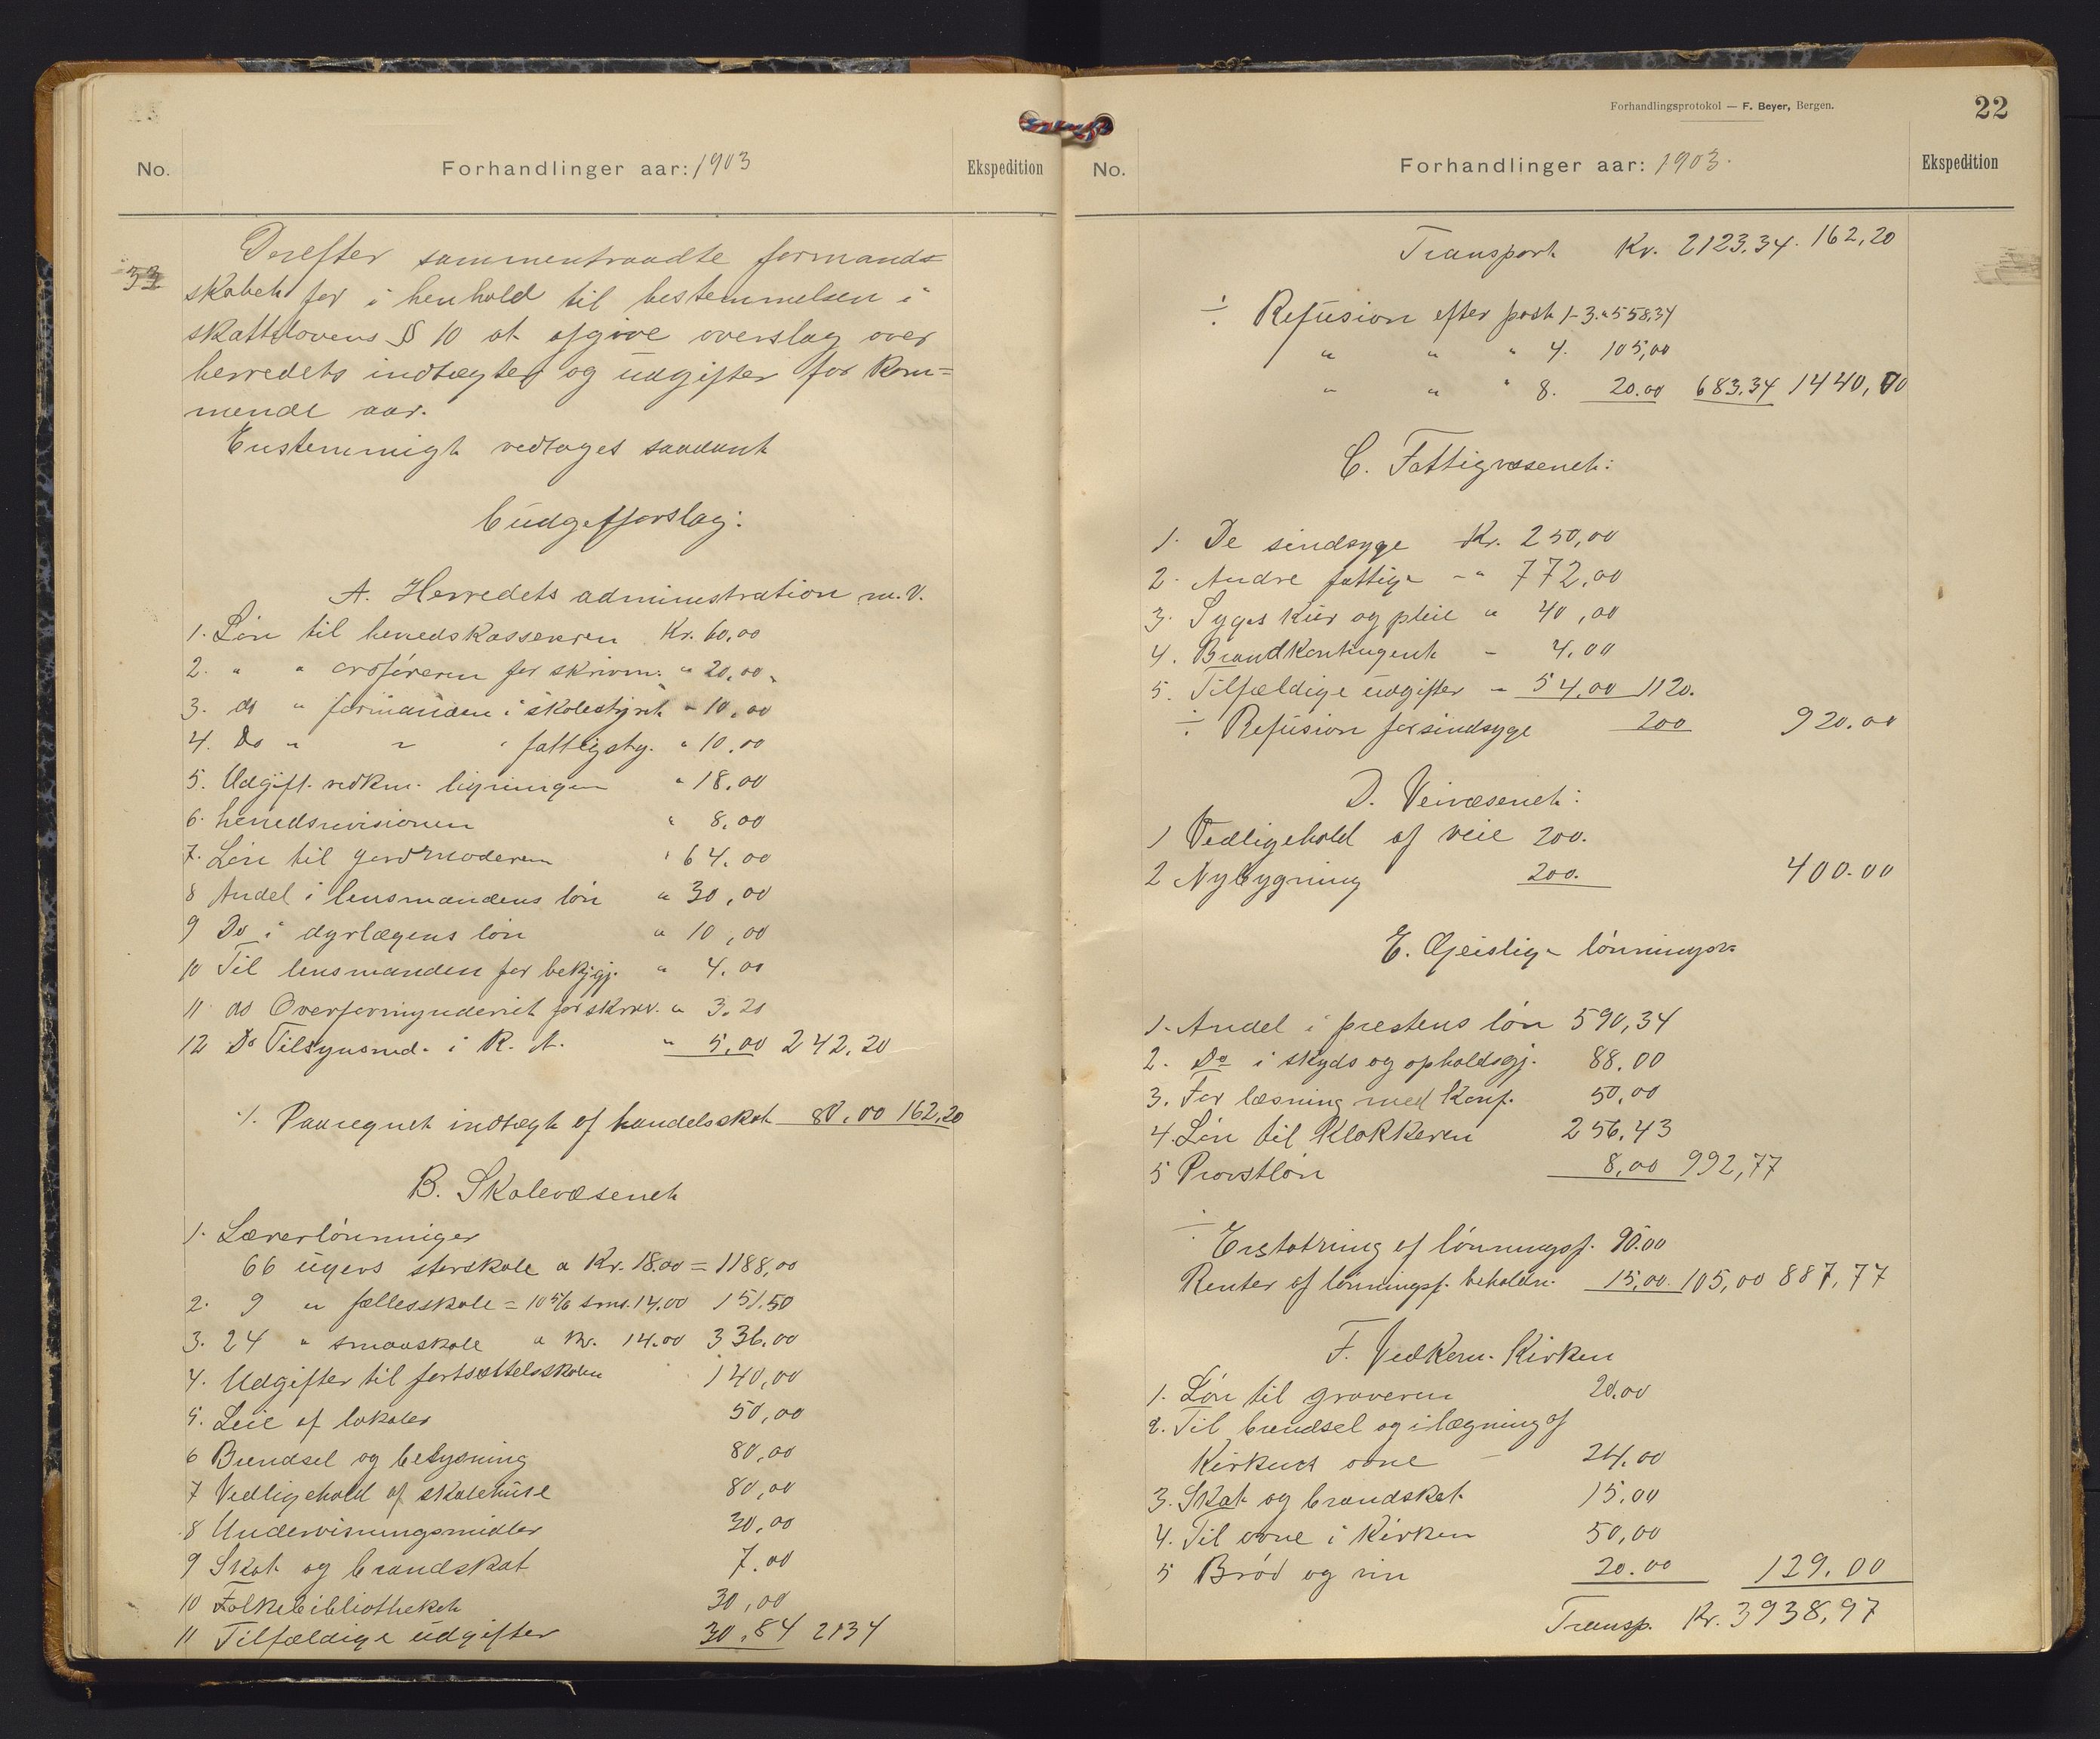 No.
Forhandlinger aar: 1903
Ekspedition
33
Derefter sammentraadte formand-
skabet for i henhold til bestemmelsen i
skattelovens § 10 at afgive overslag over
herredets indtægter og udgifter for kom=
mende aar.
Enstemmigt vedtoges saadant
budgetforslag:
A. Herredets administration m.V.
1. Løn til herredskasseren Kr. 60,00
2. " " ordføreren for skrivm. " 20,00
3. do " formanden i skolestyret " 10,00
4. Do " " " fattigsty. " 10.00
5. Udgift. vedkm. ligningen " 18.00
6. herredsrevisionen " 8,00
7. Løn til jordmoderen " 64.00
8 Andel i lensmandens løn " 30,00
9 Do i dyrlægens løn " 10,00
10 Til lensmanden for bekjgj. " 4.00
11 do Overformynderiet for skriv. " 3.20
12 Do Tilsynsmd. i R. A. " 5,00 242,20
÷ Paaregnet indtægt af handelsskat 80,00 162,20
B. Skolevæsenet
1. Lærerlønninger
66 ugers storskole a Kr. 18.00 = 1188,00
2. 9 " fællesskole = 10 5/6 sms. 14.00 151.50
3. 24 " smaaskole a Kr. 14.00 336.00
4. Udgifter til fortsættelsskolen 140,00
5. Leie af lokaler 50,00
6 Brendsel og belysning 80,00
7 Vedligehold af skolehuse 80,00
8 Undervisningsmidler 30,00
9 Skat og brandskat 7.00
10 Folkebibliotheket 30,00
11 Tilfældige udgifter 30.84 2134
Forhandlingsprotokol — F. Beyer, Bergen.
22
No.
Forhandlinger aar: 1903.
Ekspedition
Transport Kr. 2123.34. 162,20
÷ Refusion efter post 1-3 " 558,34
" " " 4. 105,00
" " " 8. 20.00 683.34 1440,00
C. Fattigvæsenet:
1. De sindsyge Kr. 250,00
2. Andre fattige - " 772,00
3. Syges Kur og pleie " 40,00
4. Brandkontingent - 4.00
5. Tilfældige udgifter - 54,00 1120.
÷ Refusion for sindsyge 200 920.00
D. Veivæsenet:
1 Vedligehold af veie 200.
2 Nybygning 200. 400.00
E. Geistlige lønninger
1. Andel i prestens løn 590,34
2. Do i skyds og opholdsgj. 88.00
3. For læsning med Konf. 50,00
4. Løn til Klokkeren 256,43
5 Provstløn 8,00 992,77
÷
Erstatning af lønningsf. 90.00
Renter af lønningsf. beholdn. 15,00. 105,00 887,77
F. Vedkom. Kirken
1. Løn til graveren 20.00
2. Til brendsel og ilægning af
Kirkens ovne - 24.00
3. Skat og brandskat 15.00
4. Til ovne i Kirken 50,00
5 Brød og vin 20.00 129.00
Transp. Kr. 3938,97